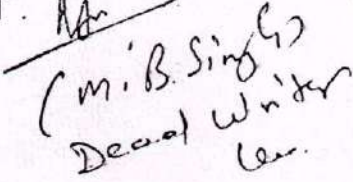 (M.B. Singh)
Deed Writer